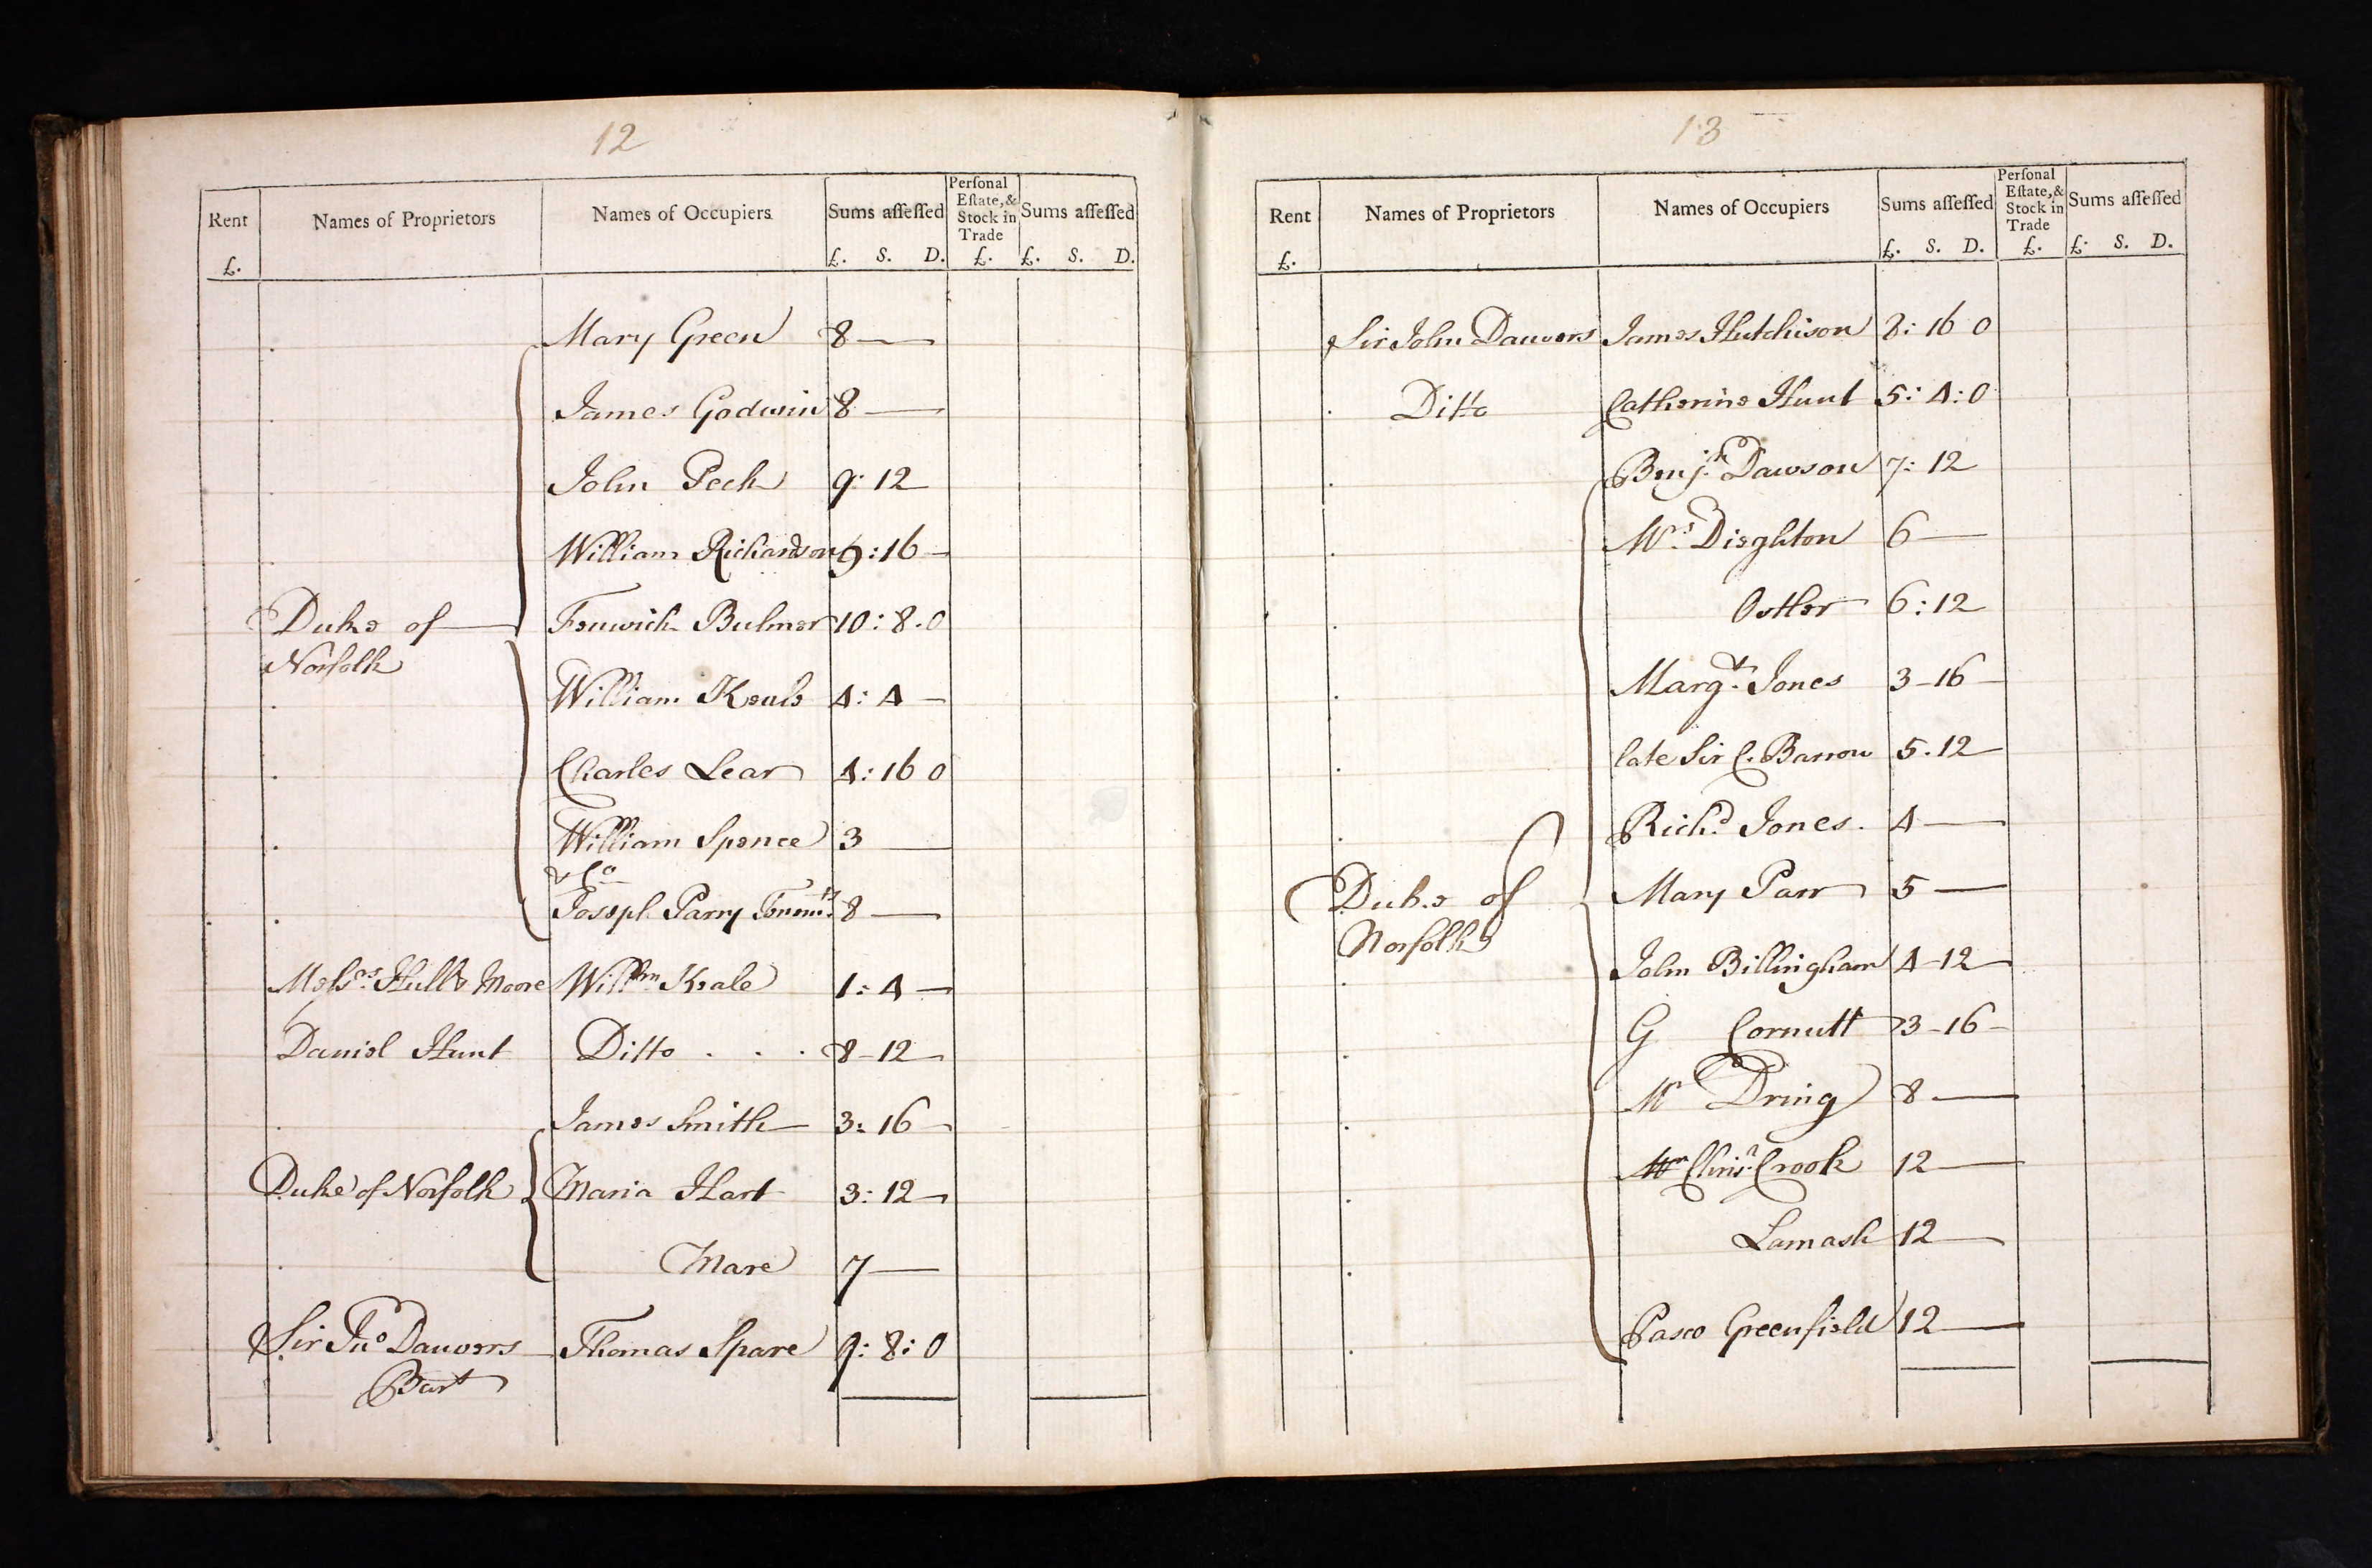 12
Rent Names of Proprietors Names of Occupiers Sums aſſeſſed Perſonal Eſtate, & Stock in Trade Sums aſſeſſed
£. £. S. D. £. £. S. D.
Mary Green 8 —
James Godwin 8 —
John Peck 9: 12
William Richardson 9: 16 —
Duke of Norfolk Fenwick Bulmer 10: 8. 0
William Keale 4: 4 —
Charles Lear 4: 16 0
William Spence 3 —
& Co
Joseph Parry 8 —
Meſsrs. Hull & Moore Willm Keale 1: 4 —
Daniel Hunt Ditto . . . 8 - 12 —
James Smith 3: 16 —
Duke of Norfolk Maria Hart 3: 12 —
Mare 7 —
Sir Jno Danvers Thomas Spare 9: 8: 0
Bart
13
Rent Names of Proprietors Names of Occupiers Sums aſſeſſed Perſonal Eſtate, & Stock in Trade Sums aſſeſſed
£. £. S. D. £. £. S. D.
Sir John Danvers James Hutchison 8: 16 0
Ditto Catherine Hunt 5: 4: 0
Benjn. Dawson 7: 12
Mrs. Dieghton 6 —
Ostler 6: 12
Margt. Jones 3 - 16 —
late Sir C. Barrow 5. 12 —
Richd. Jones. 4 —
Duke of Mary Parr 5 —
Norfolk
John Billingham 4 - 12 —
G Cornutt 3 - 16 -
Mr Dring 8 —
Chrisr. Crook 12 —
Lamash 12 —
Pasco Greenfield 12 —